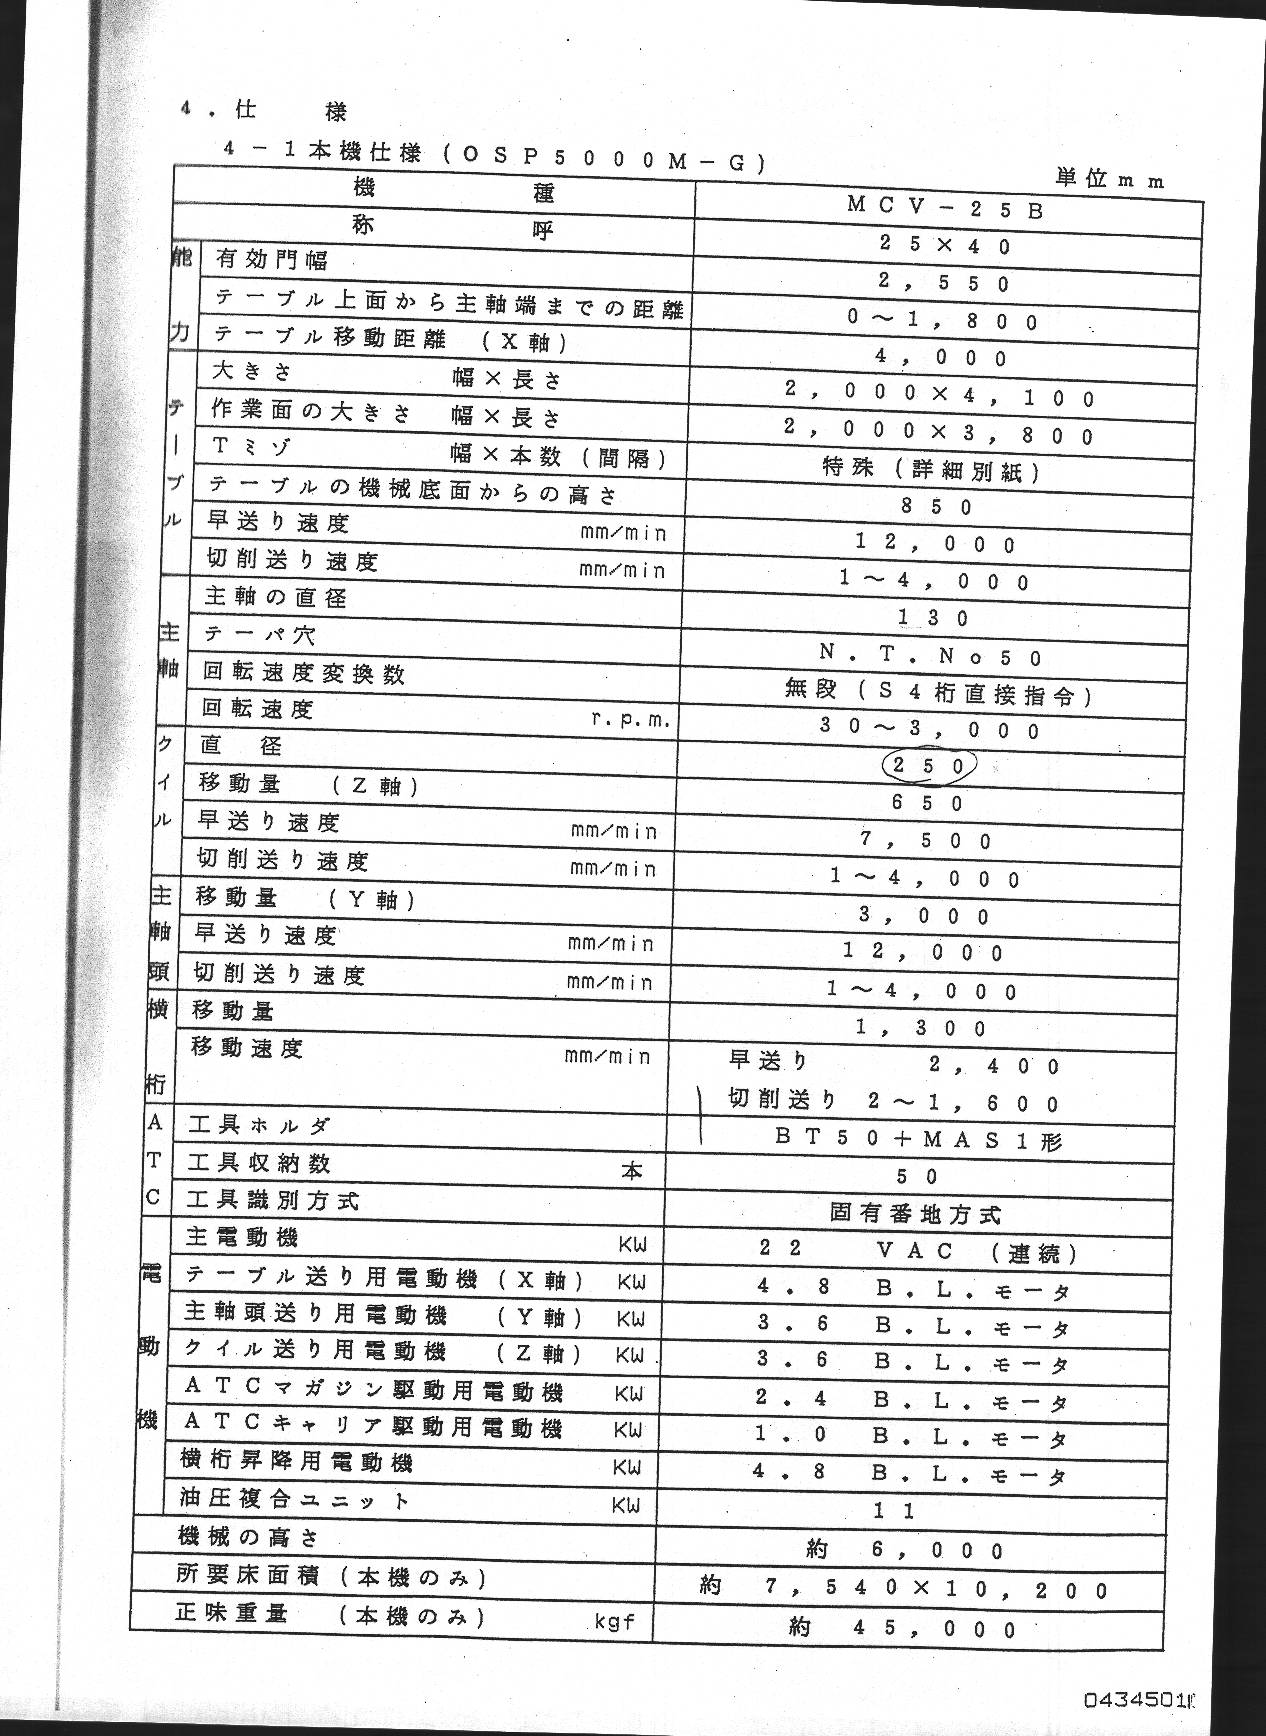 4．仕　様
4－1本機仕様（OSP5000M－G）
単位mm
機　種　MCV－25B
称　呼　25×40
能力
有効門幅　2，550
テーブル上面から主軸端までの距離　0～1，800
テーブル移動距離（X軸）　4，000
テーブル
大きさ　幅×長さ　2，000×4，100
作業面の大きさ　幅×長さ　2，000×3，800
Tミゾ　幅×本数（間隔）　特殊（詳細別紙）
テーブルの機械底面からの高さ　850
早送り速度　mm/min　12，000
切削送り速度　mm/min　1～4，000
主軸
主軸の直径　130
テーパ穴　N．T．No50
回転速度変換数　無段（S4桁直接指令）
回転速度　r.p.m.　30～3，000
クイル
直　径　250
移動量（Z軸）　650
早送り速度　mm/min　7，500
切削送り速度　mm/min　1～4，000
主軸頭
移動量（Y軸）　3，000
早送り速度　mm/min　12，000
切削送り速度　mm/min　1～4，000
横桁
移動量　1，300
移動速度　mm/min　早送り　2，400
切削送り　2～1，600
ATC
工具ホルダ　BT50＋MAS1形
工具収納数　本　50
工具識別方式　固有番地方式
電動機
主電動機　KW　22　VAC（連続）
テーブル送り用電動機（X軸）　KW　4．8　B．L．モータ
主軸頭送り用電動機（Y軸）　KW　3．6　B．L．モータ
クイル送り用電動機（Z軸）　KW　3．6　B．L．モータ
ATCマガジン駆動用電動機　KW　2．4　B．L．モータ
ATCキャリア駆動用電動機　KW　1．0　B．L．モータ
横桁昇降用電動機　KW　4．8　B．L．モータ
油圧複合ユニット　KW　11
機械の高さ　約　6，000
所要床面積（本機のみ）　約　7，540×10，200
正味重量（本機のみ）　kgf　約　45，000